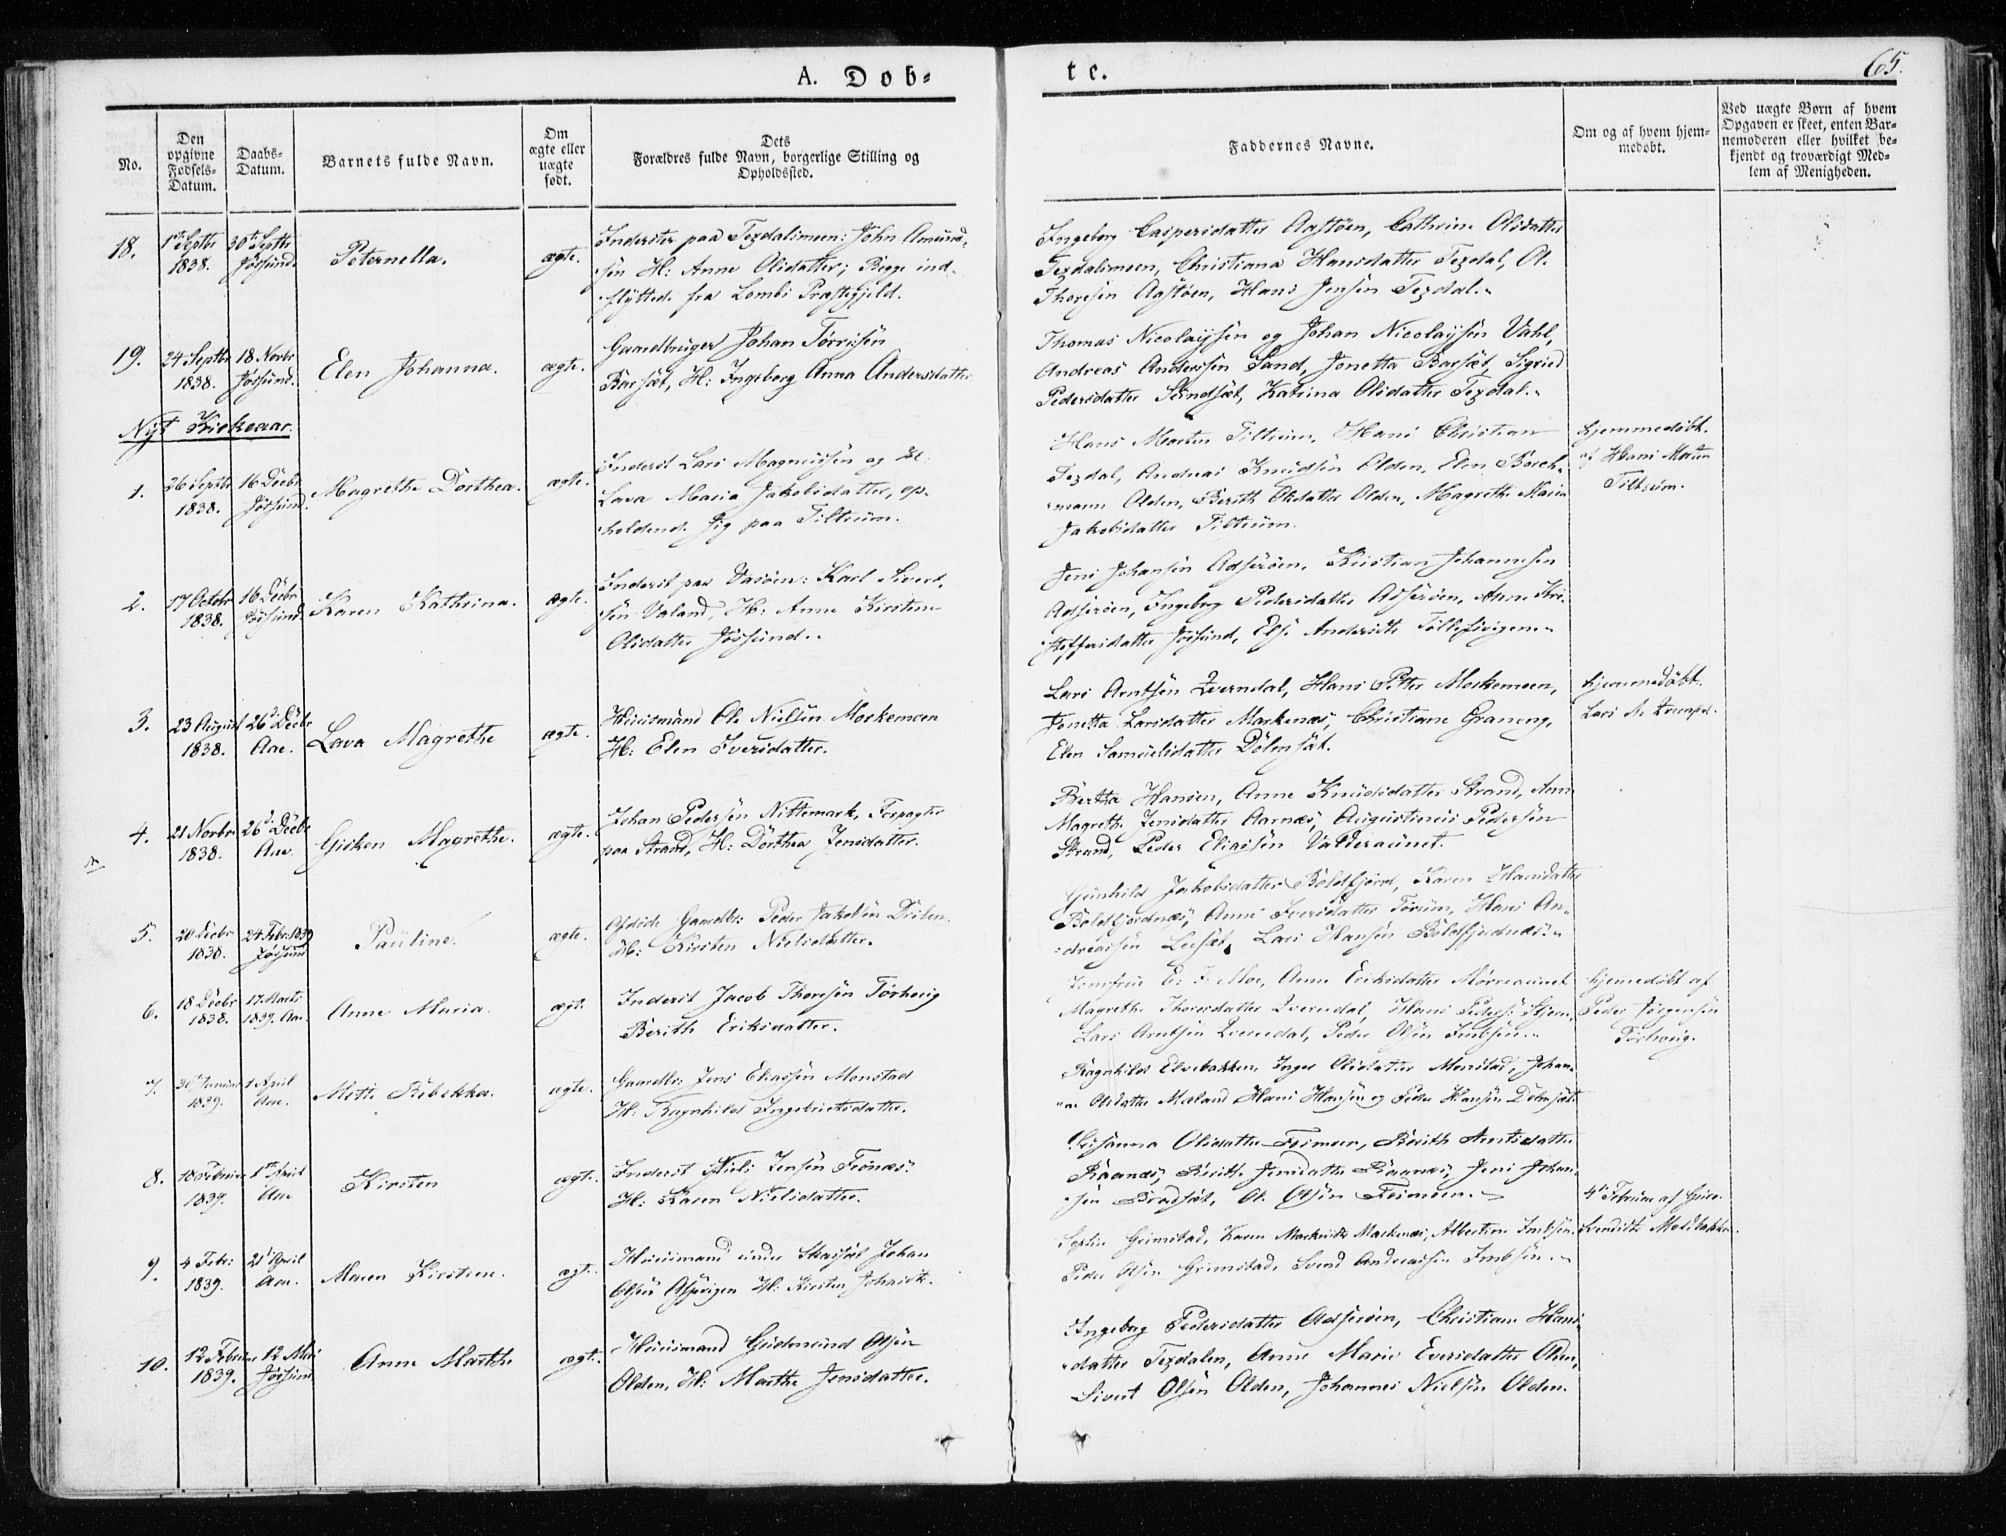 A. Døb=
te.
65.
No.
Den opgivne Fødsels-Datum.
Daabs-Datum.
Barnets fulde Navn.
Om ægte eller uægte født.
Dets Forældres fulde Navn, borgerlige Stilling og Opholdssted.
Faddernes Navne.
Om og af hvem hjemmedøbt.
Ved uægte Børn af hvem Opgaven er skeet, enten Barnemoderen eller hvilket bekjendt og troværdigt Medlem af Menigheden.
18.
1ste Septbr 1838.
30te Septbr Jøssund.
Peternella.
ægte.
Inderster paa Texdalsmoen: John Amund-
sen H: Anne Olsdatter; Begge ind-
flyttede fra Præstegjeld.
Ingeborg Caspersdatter Agstøen, Cathrine Olsdatter
Texdalsmoen, Christiana Hansdatter Texdal, Ol.
Thoresen Agstøen, Hans Jensen Texdal.
19.
24 Septbr 1838.
18 Novbr Jøssund.
Elen Johanna.
ægte.
Gaardbruger Johan Torrisen
Barsæt, H: Ingeborg Anna Andersdatter
Thomas Nicolaysen og Johan Nicolaysen Vahl,
Andreas Anderssen Sand, Jonetta Barsæt, Sigried
Pedersdatter Sundsæt, Katrina Olsdatter Texdal.
Nyt Kirkeaar.
1.
26 Septbr 1838.
16 Decbr Jøssund.
Magrethe Dorthea.
ægte.
Inderst Lars Magnussen og H:
Lava Maria Jakobsdatter, op-
holdende sig paa Tiltrum.
Hans Morten Tiltrum, Hans Christian
Texdal, Andreas Knudsen Olden, Elen Borch-
mann Olden, Berith Olsdatter Olden, Magrethe Maria
Jakobsdatter Tiltrum.
hjemmedøbt
af Hans Morten
Tiltrum.
2.
17 Octobr 1838.
16 Decbr Jøssund.
Karen Kathrina.
ægte.
Inderst paa Vasøen: Karl Sivert-
sen Valand, H: Anne Kirstine
Olsdatter, Jøssund.
Jens Johansen Adserøen, Kristian Johannesen
Adserøen, Ingeborg Pedersdatter Adserøen, Anne Kri-
stoffersdatter Jøssund, Else Andersdtr
3.
23 August 1838.
26de Decbr Aae.
Lava Magrethe
ægte.
Huusmand Ole Nielsen Morkemoen
H: Elen Iversdatter.
Lars Arntsen Tverndal, Hans Petter Morkemoen,
Jonetta Larsdatter Markenæs, Christiane Graneng,
Elen Samuelsdatter Dølmsæt.
hjemmedøbt.
Lars A.
4.
21 Novbr 1838.
26de Decbr Aae
Gisken Magrethe.
ægte.
Johan Pedersen Nittemark, Forpagter
paa Strand, H: Dorthea Jensdatter.
Bertha Hansen, Anne Knudsdatter Strand, Ann
Magrethe Jensdatter Aarnæs, Augustinus Pedersen
Strand, Peder Eliassen Valderaunet.
5.
20 Decbr 1838.
24 Febr. 1839 Jøssund
Pauline.
ægte.
Afdøde Gaardbr: Peder Jakobsen
H: Kirsten Nielsdatter.
Gunhild Jakobsdatter Boldfjord, Karen Hansdatter
Boldfjordnæs, Anne Iversdatter Torum, Hans An-
dreassen Lars Hansen Boldfjordnæs.
6.
18 Decbr 1838.
17 Marts 1839. Aae.
Anne Maria.
ægte
Inderst Jacob Thoresen Tørhoug
Berith Eriksdatter.
Jomfrue E. F. Moe, Anne Eriksdatter Mørreaunet
Magrethe Thoresdatter Tverndal, Hans Peders.
Lars Arntsen Tverndal, Peder Olsen
hjemmedøbt af
Peder Jørgensen
Tørhoug.
7.
30 Januar 1839.
1 April Aae.
Mette Rebekka.
ægte.
Gaardbr: Jens Eliassen Monstad
H: Ragnhild Ingebrietsdatter.
Ragnhild Elvebakken, Inger Olsdatter Monstad, Johan-
na Olsdatter Mæland Hans Hansen og Peder Hansen Dølmsæt.
8.
10 Februar 1839.
1ste April Aae
Kirsten
ægte.
Inderst Niels Jensen
H: Karen Nielsdatter.
Susanna Olsdatter Berith Arntsdatter
Raanæs, Berith Jensdatter Jens Johan-
sen Ol. Olsen
9.
4 Febr: 1839.
21de April Aae.
Maren Kirstine.
ægte.
Huusmand under Johan
Olsen H: Kirsten Johansdtr.
Sophie Grimstad, Karen Markenæs, Albertine
Peder Olsen Grimstad, Svend Andreassen
4de Februar af
Moldbakken.
10.
12 Februar 1839.
12 Mai Jøssund
Anne Marthe
ægte.
Huusmand Gudmund Olsen
Olden, H: Marthe Jensdatter.
Ingeborg Pedersdatter Adserøen, Christiane Hans-
datter Texdalen, Anne Marie Eversdatter Olden,
Sivert Olsen Olden, Johannes Nielsen Olden.